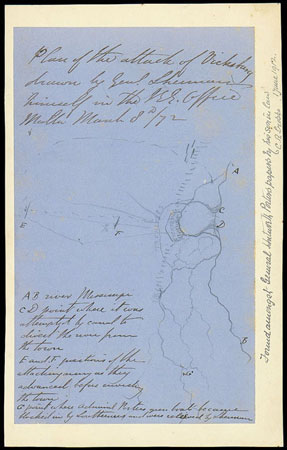 Plan of the attack of Vicksburg
drawn by Genl Sherman
himself in the R.E. Office
Malta March 8th/72
A
C
D
E
F
B
A B river Mississippi
C D point where it was
attempted by canal to
divert the river from
the town.
E and F positions of the
attacking army as they
advanced before investing
the town.
G point where Admiral Porters gun boats became
blocked in by Southerners and were relieved by Sherman
Found amongst General Haworth Porter's papers by his son in law
June 1912.